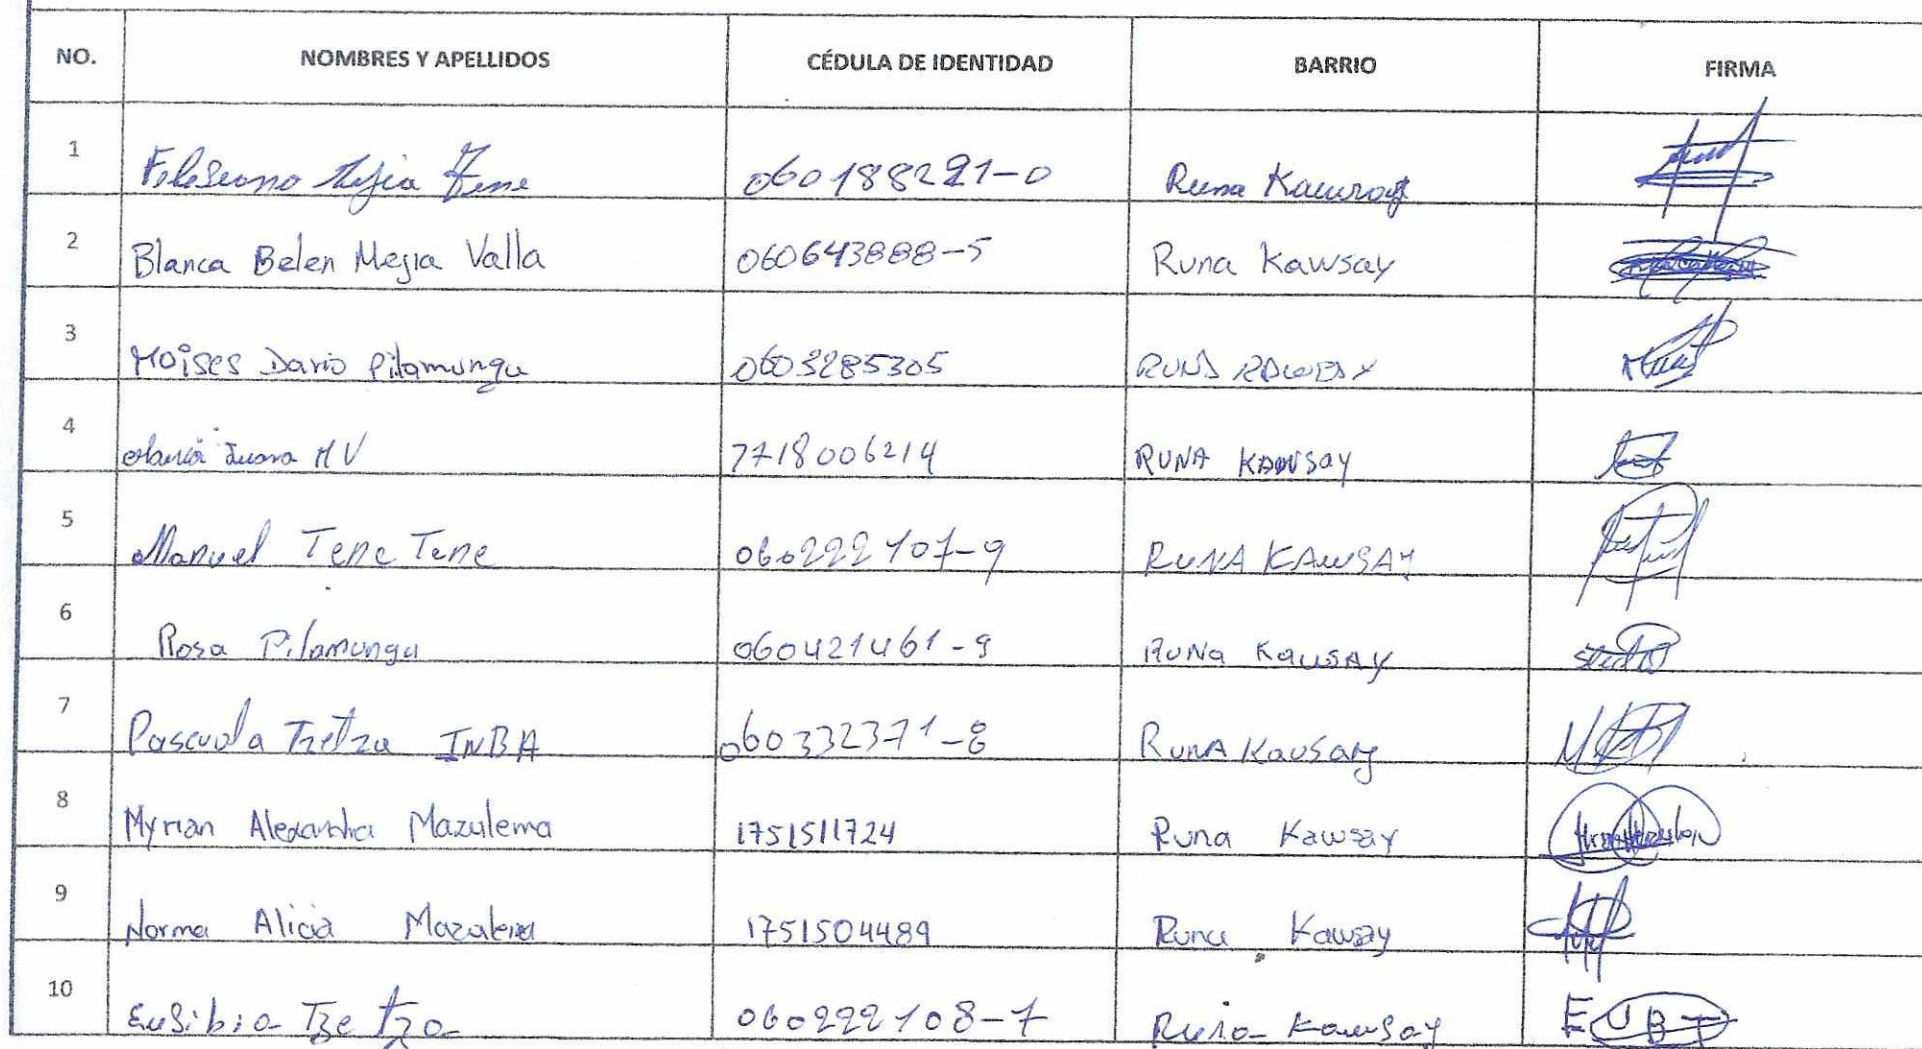 NO. NOMBRES Y APELLIDOS CÉDULA DE IDENTIDAD BARRIO FIRMA
1 Mejia Tene 060188221-0 Runa Kawsay
2 Blanca Belen Mejia Valla 060643888-5 Runa Kawsay
3 Moises Dario Pilamunga 0603285305 RUNA KAWSAY
4 Maria Juana M V 7718006214 RUNA KAWSAY
5 Manuel Tene Tene 060222107-9 RUNA KAWSAY
6 Rosa Pilamunga 060421461-9 RUNA KAWSAY
7 Pascuala Tzetza INBA 060332371-8 RUNA Kausay
8 Myrian Alexandra Mazalema 1751511724 Runa Kawsay
9 Norma Alicia Mazalema 1751504489 Runa Kawsay
10 Eusibio Tzetza 060222108-7 Runa Kawsay EUBT